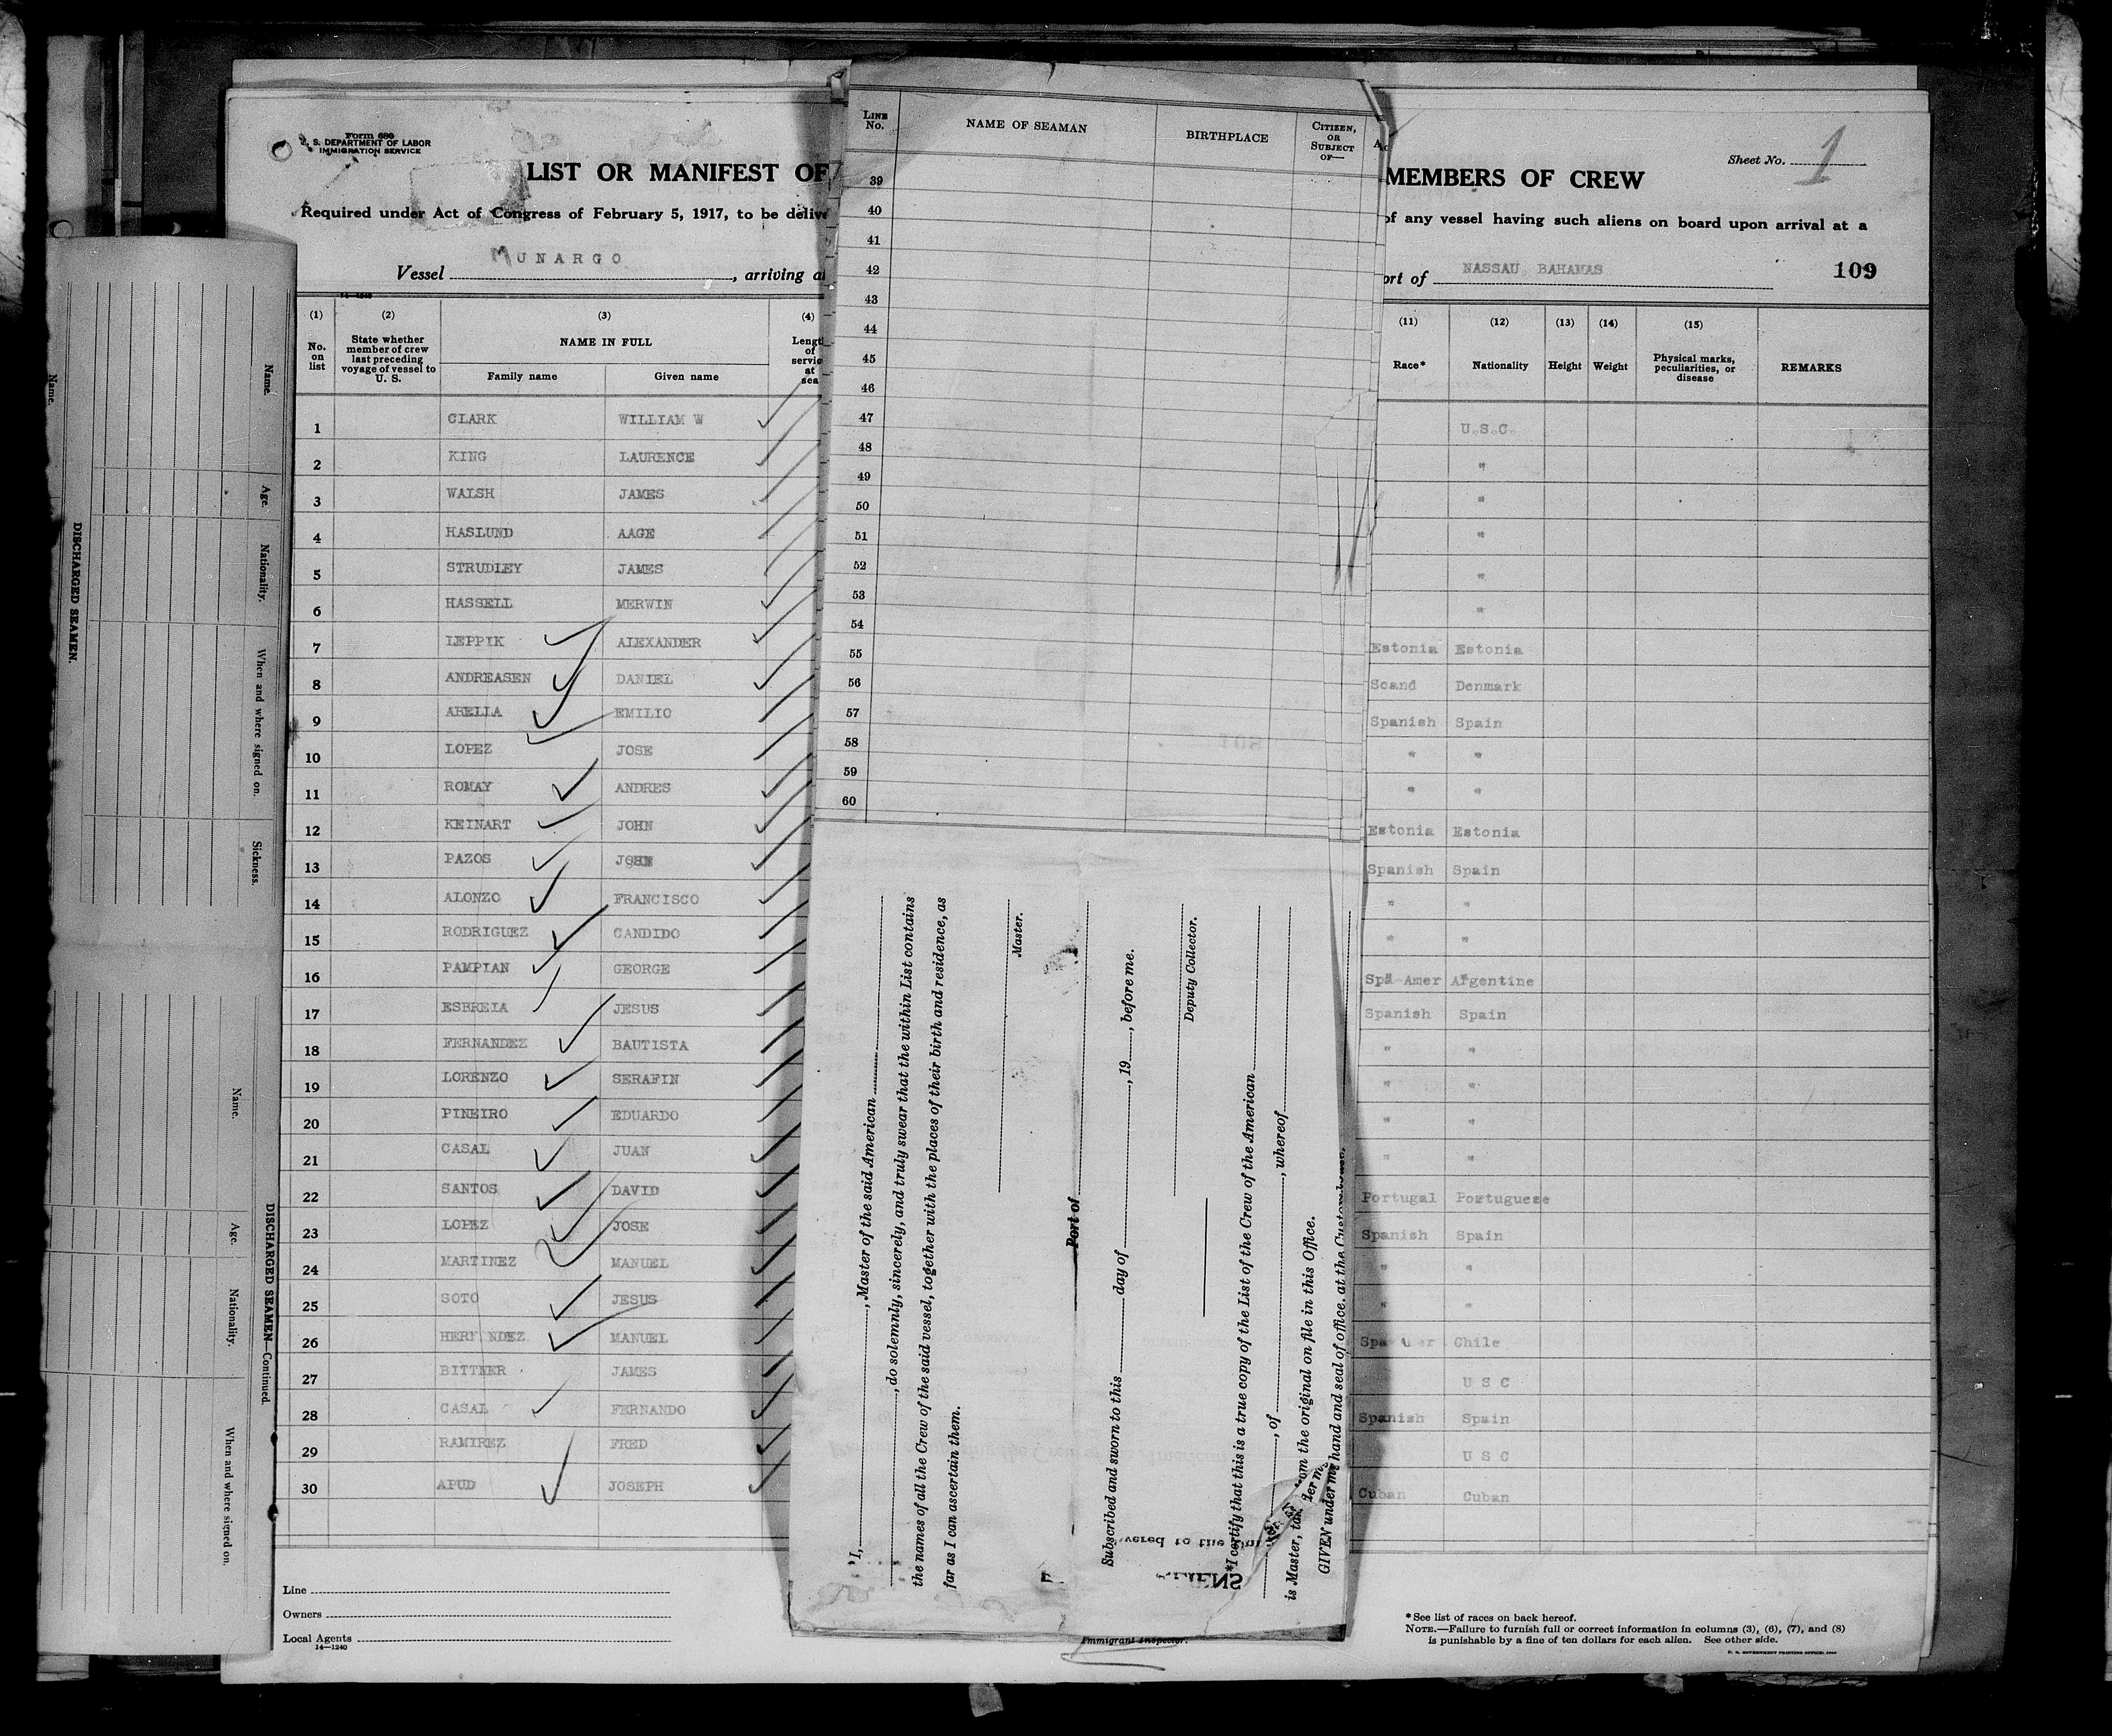 Form 680
U. S. DEPARTMENT OF LABOR
IMMIGRATION SERVICE
LIST OR MANIFEST OF
MEMBERS OF CREW
Sheet No. 1
Required under Act of Congress of February 5, 1917, to be delive
of any vessel having such aliens on board upon arrival at a
Vessel MUNARGO, arriving a
ort of NASSAU BAHAMAS
109
14—1240
(1) (2) (3) (4) (11) (12) (13) (14) (15)
No. on list
State whether member of crew last preceding voyage of vessel to U. S.
NAME IN FULL
Family name Given name
Lengt of servic at sea
Race* Nationality Height Weight Physical marks, peculiarities, or disease REMARKS
1 CLARK WILLIAM W U.S.C.
2 KING LAURENCE "
3 WALSH JAMES "
4 HASLUND AAGE "
5 STRUDLEY JAMES "
6 HASSELL MERWIN "
7 LEPPIK ALEXANDER Estonia Estonia
8 ANDREASEN DANIEL Scand Denmark
9 ABELLA EMILIO Spanish Spain
10 LOPEZ JOSE " "
11 ROMAY ANDRES " "
12 KEINART JOHN Estonia Estonia
13 PAZOS JOHN Spanish Spain
14 ALONZO FRANCISCO " "
15 RODRIGUEZ CANDIDO " "
16 PAMPIAN GEORGE Spa Amer Argentine
17 ESBREIA JESUS Spanish Spain
18 FERNANDEZ BAUTISTA " "
19 LORENZO SERAFIN " "
20 PINEIRO EDUARDO " "
21 CASAL JUAN " "
22 SANTOS DAVID Portugal Portuguese
23 LOPEZ JOSE Spanish Spain
24 MARTINEZ MANUEL " "
25 SOTO JESUS " "
26 HERN NDEZ MANUEL Spa er Chile
27 BITTNER JAMES U S C
28 CASAL FERNANDO Spanish Spain
29 RAMIREZ FRED U S C
30 APUD JOSEPH Cuban Cuban
Line
Owners
Local Agents
14—1240
Immigrant Inspector.
* See list of races on back hereof.
NOTE.—Failure to furnish full or correct information in columns (3), (6), (7), and (8)
is punishable by a fine of ten dollars for each alien. See other side.
U. S. GOVERNMENT PRINTING OFFICE
LINE No. NAME OF SEAMAN BIRTHPLACE CITIZEN, OR SUBJECT OF—
39
40
41
42
43
44
45
46
47
48
49
50
51
52
53
54
55
56
57
58
59
60
I, , Master of the said American
, do solemnly, sincerely, and truly swear that the within List contains
the names of all the Crew of the said vessel, together with the places of their birth and residence, as
far as I can ascertain them.
Master.
Port of
Subscribed and sworn to this day of , 19 , before me.
Deputy Collector.
*I certify that this is a true copy of the List of the Crew of the American
, of , whereof
is Master, tak from the original on file in this Office.
GIVEN under my hand and seal of office, at the Customhouse,
vered to the
LIENS
Name. Age. Nationality. When and where signed on. Sickness.
DISCHARGED SEAMEN.
Name.
Name. Age. Nationality. When and where signed on.
DISCHARGED SEAMEN—Continued.